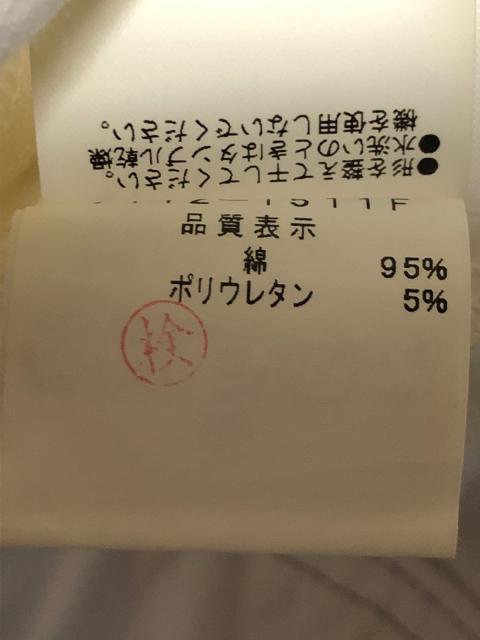 ●形を整えて干してください。
●水洗いのときはタンブル乾燥
機を使用しないでください。
品質表示
綿 95%
ポリウレタン 5%
検